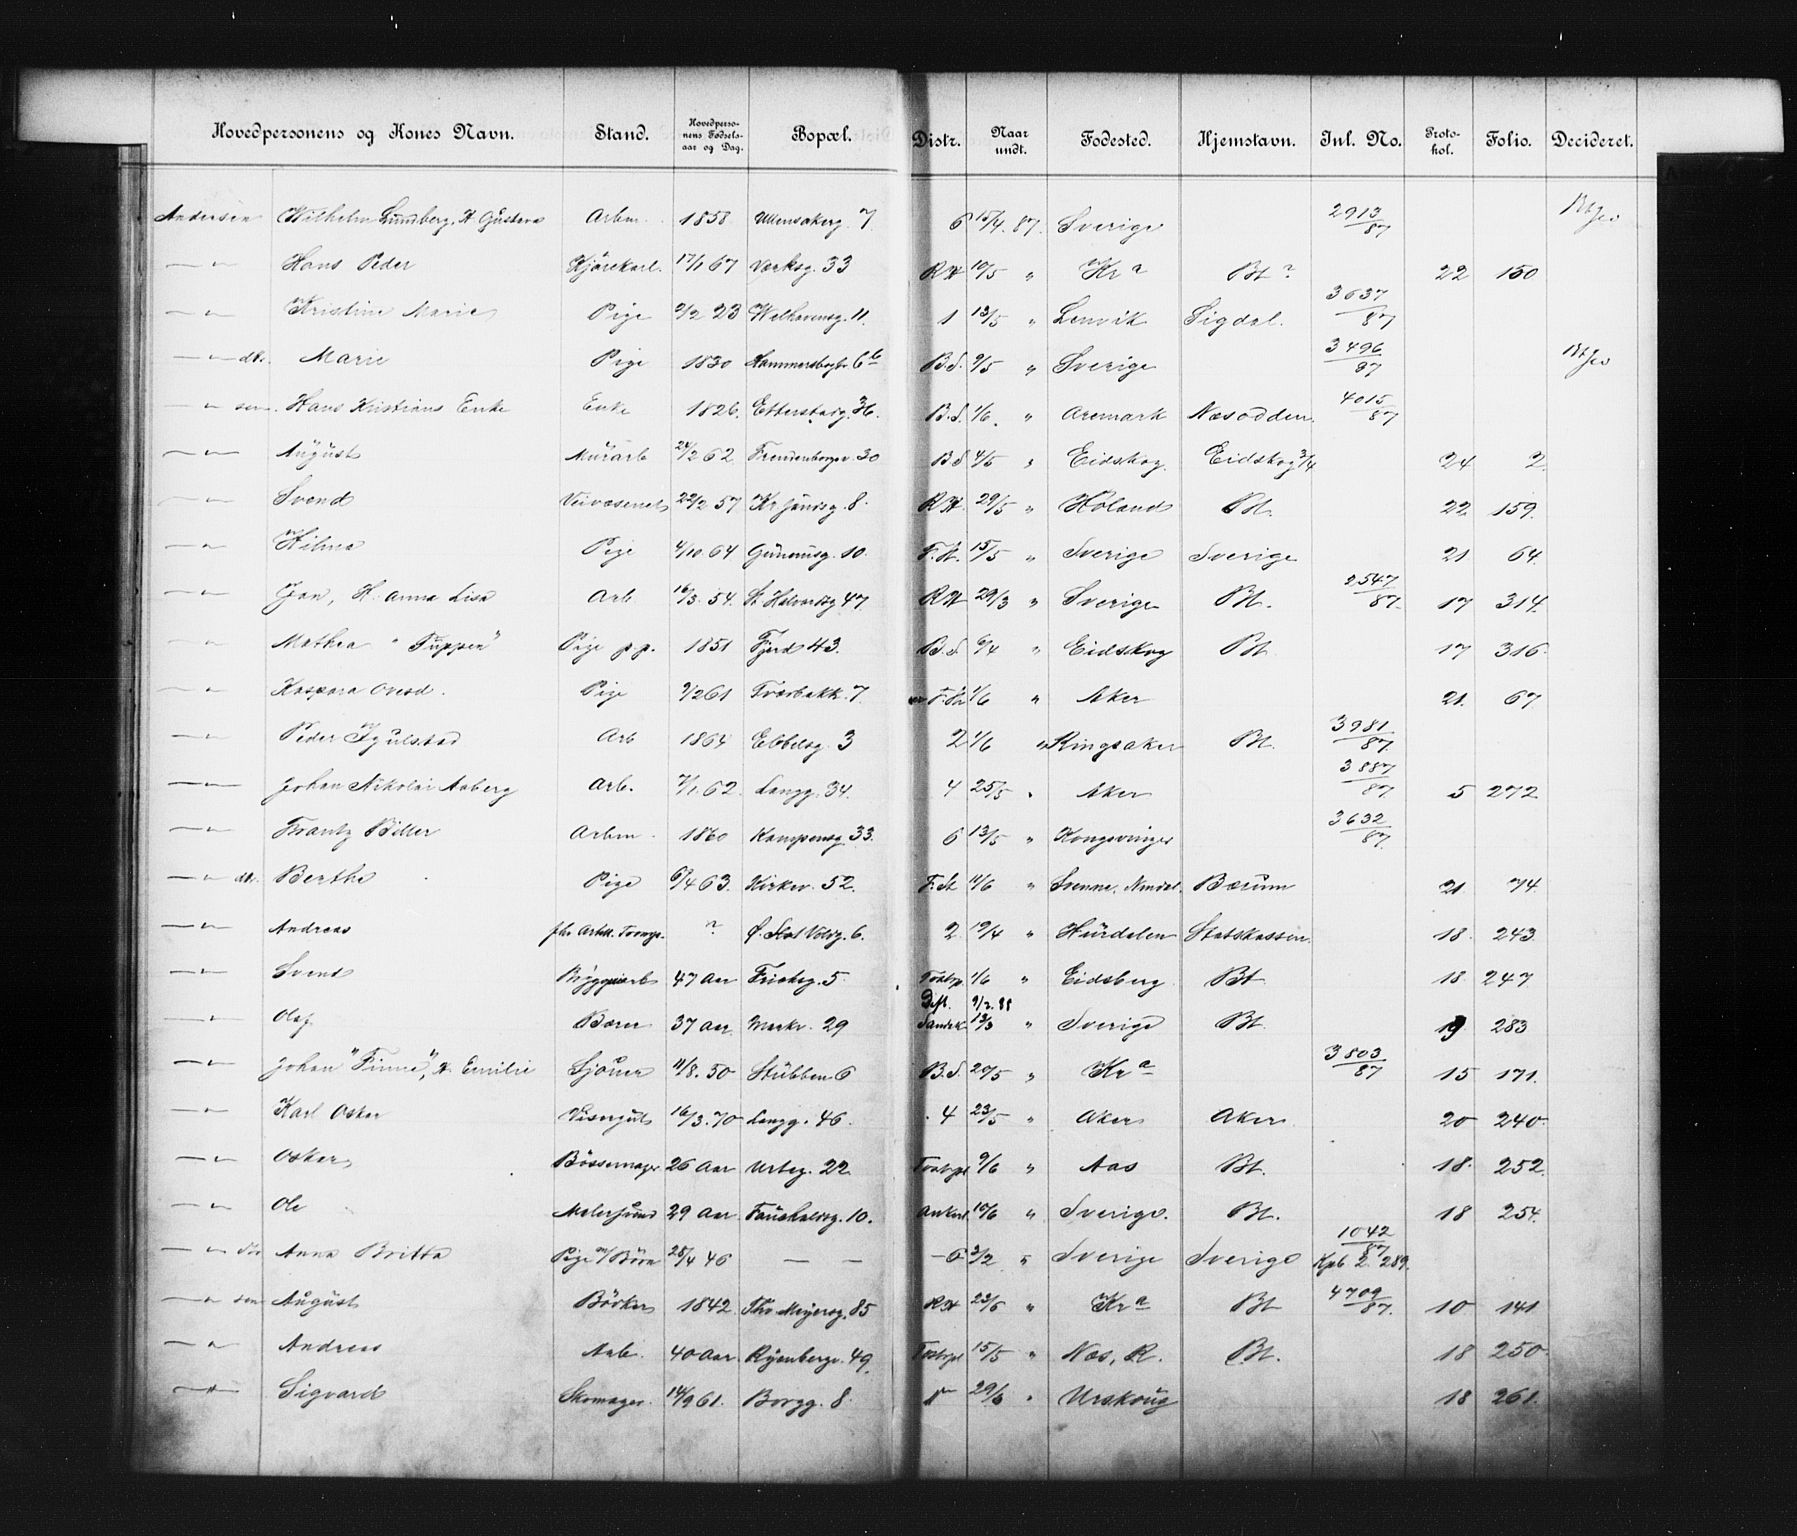 Hovedpersonens og Kones Navn. Stand. Hovedperso-nens Fødsels-aar og Dag. Bopæl. Distr. Naar undt. Fødested. Hjemstavn. Inl. No. Proto-kol. Folio. Decideret.
Andersen Wilhelm Lundberg, H. Gustava Arbm. 1858 Ullensakerg. 7 6 15/4. 87. Sverige 2913/87
— " — Hans Peder Kjørekarl. 17/1 67 Værksg. 33 RH 10/5 " Kra Bt ? 22 150
— " — Kristine Marie Pige 2/2 23 Welhavensg. 11. 1 13/5 " Lenvik Sigdal. 3637/87
— " — dtr. Marie Pige 1830 Hammersborgtr. 6b B.S. 9/5 " Sverige 3496/87
— " sen. Hans Kristians Enke Enke 1826. Etterstadg. 36. B.S. 1/6 " Aremark Næsodden. 4015/87
— " — August Murarb 24/2 62 30 B.S 4/5 " Eidskog. Eidskog 3/4 24 2
— " — Svend Veivæsenet 22/2 57 8. RH. 29/5 " Høland Bt. 22 159.
— " — Hilma Pige 4/10 64 Gunerusg. 10. F.H. 15/5 " Sverige Sverige 21 64.
— " — Jan, H. Anna Lisa Arb. 16/3. 54. St. Halvardsg 47 RH 29/3 " Sverige Bt. 2547/87. 17 314.
— " — Mathea "Tuppen" Pige p.p. 1851 Fjerd 43. B.S 6/4 " Eidskog Bt 17 316.
— " — Kaspara Ovesd. Pige 9/2 61 Tværbakk. 7. F.H. 1/6 " Aker 21. 67.
— " — Peder Arb 1864 Ebbelsg. 3 2 1/6 " Ringsaker Bt. 3981/87.
— " — Johan Nikolai Aaberg Arb. 7/1 62. Langg. 34. 4 25/5 " Aker 3887/87 5 272
— " — Frantz Biller Arbm. 1860 Kampensg 33. 6 13/5 " Kongsvinger 3632/87.
— " — dtr. Berthe Pige 6/4 63. Kirkev. 52. F.H. 11/6 " Bærum 21 74.
— " — Andreas ? Ø. Slots Voldg. 6. 2. 19/4 " Hurdalen Statskassen. 18. 243.
— " — Svend Bryggearb 47 Aar Friisksg. 5. 1/6 " Eidsberg Bt 18. 247
— " — Olaf Bærer 37 Aar. Markv. 29 13/3 " Sverige Bt. 19 283
— " — Johan "Finne", H. Emilie Sjouer 11/8. 50 Stubben 6 B.S. 27/5 " Kra 3803/87 15 171.
— " — Karl Oskar Visergut 16/3. 70 Langg. 46. 4 23/5 " Aker Aker 20 240.
— " — Oskar Bøssemager 26 Aar Urteg. 22. 9/6 " Aas Bt. 18. 252.
— " — Ole Malersvend 29 Aar. Fauchaldsg. 10. Ankerl. 10/6 " Sverige. Bt. 18 254.
— " dtr Anna Britta Pige m/Børn 28/4 46 — — 6 3/2 " Sverige Sverige 1042/87 Kpb. 2. 289.
— " sen August Bødker 1842. Thv. Meyersg. 85 RH 23/6 " Kra Bt 4709/87. 10 141
— " — Andreas Arb. 40 Aar. Ryenbergv. 49. 15/5 " Næs, R. Bt. 18 250.
— " — Sigvard Skomager. 14/9 61. Borgg. 8. 29/6 " Urskoug 18 261.